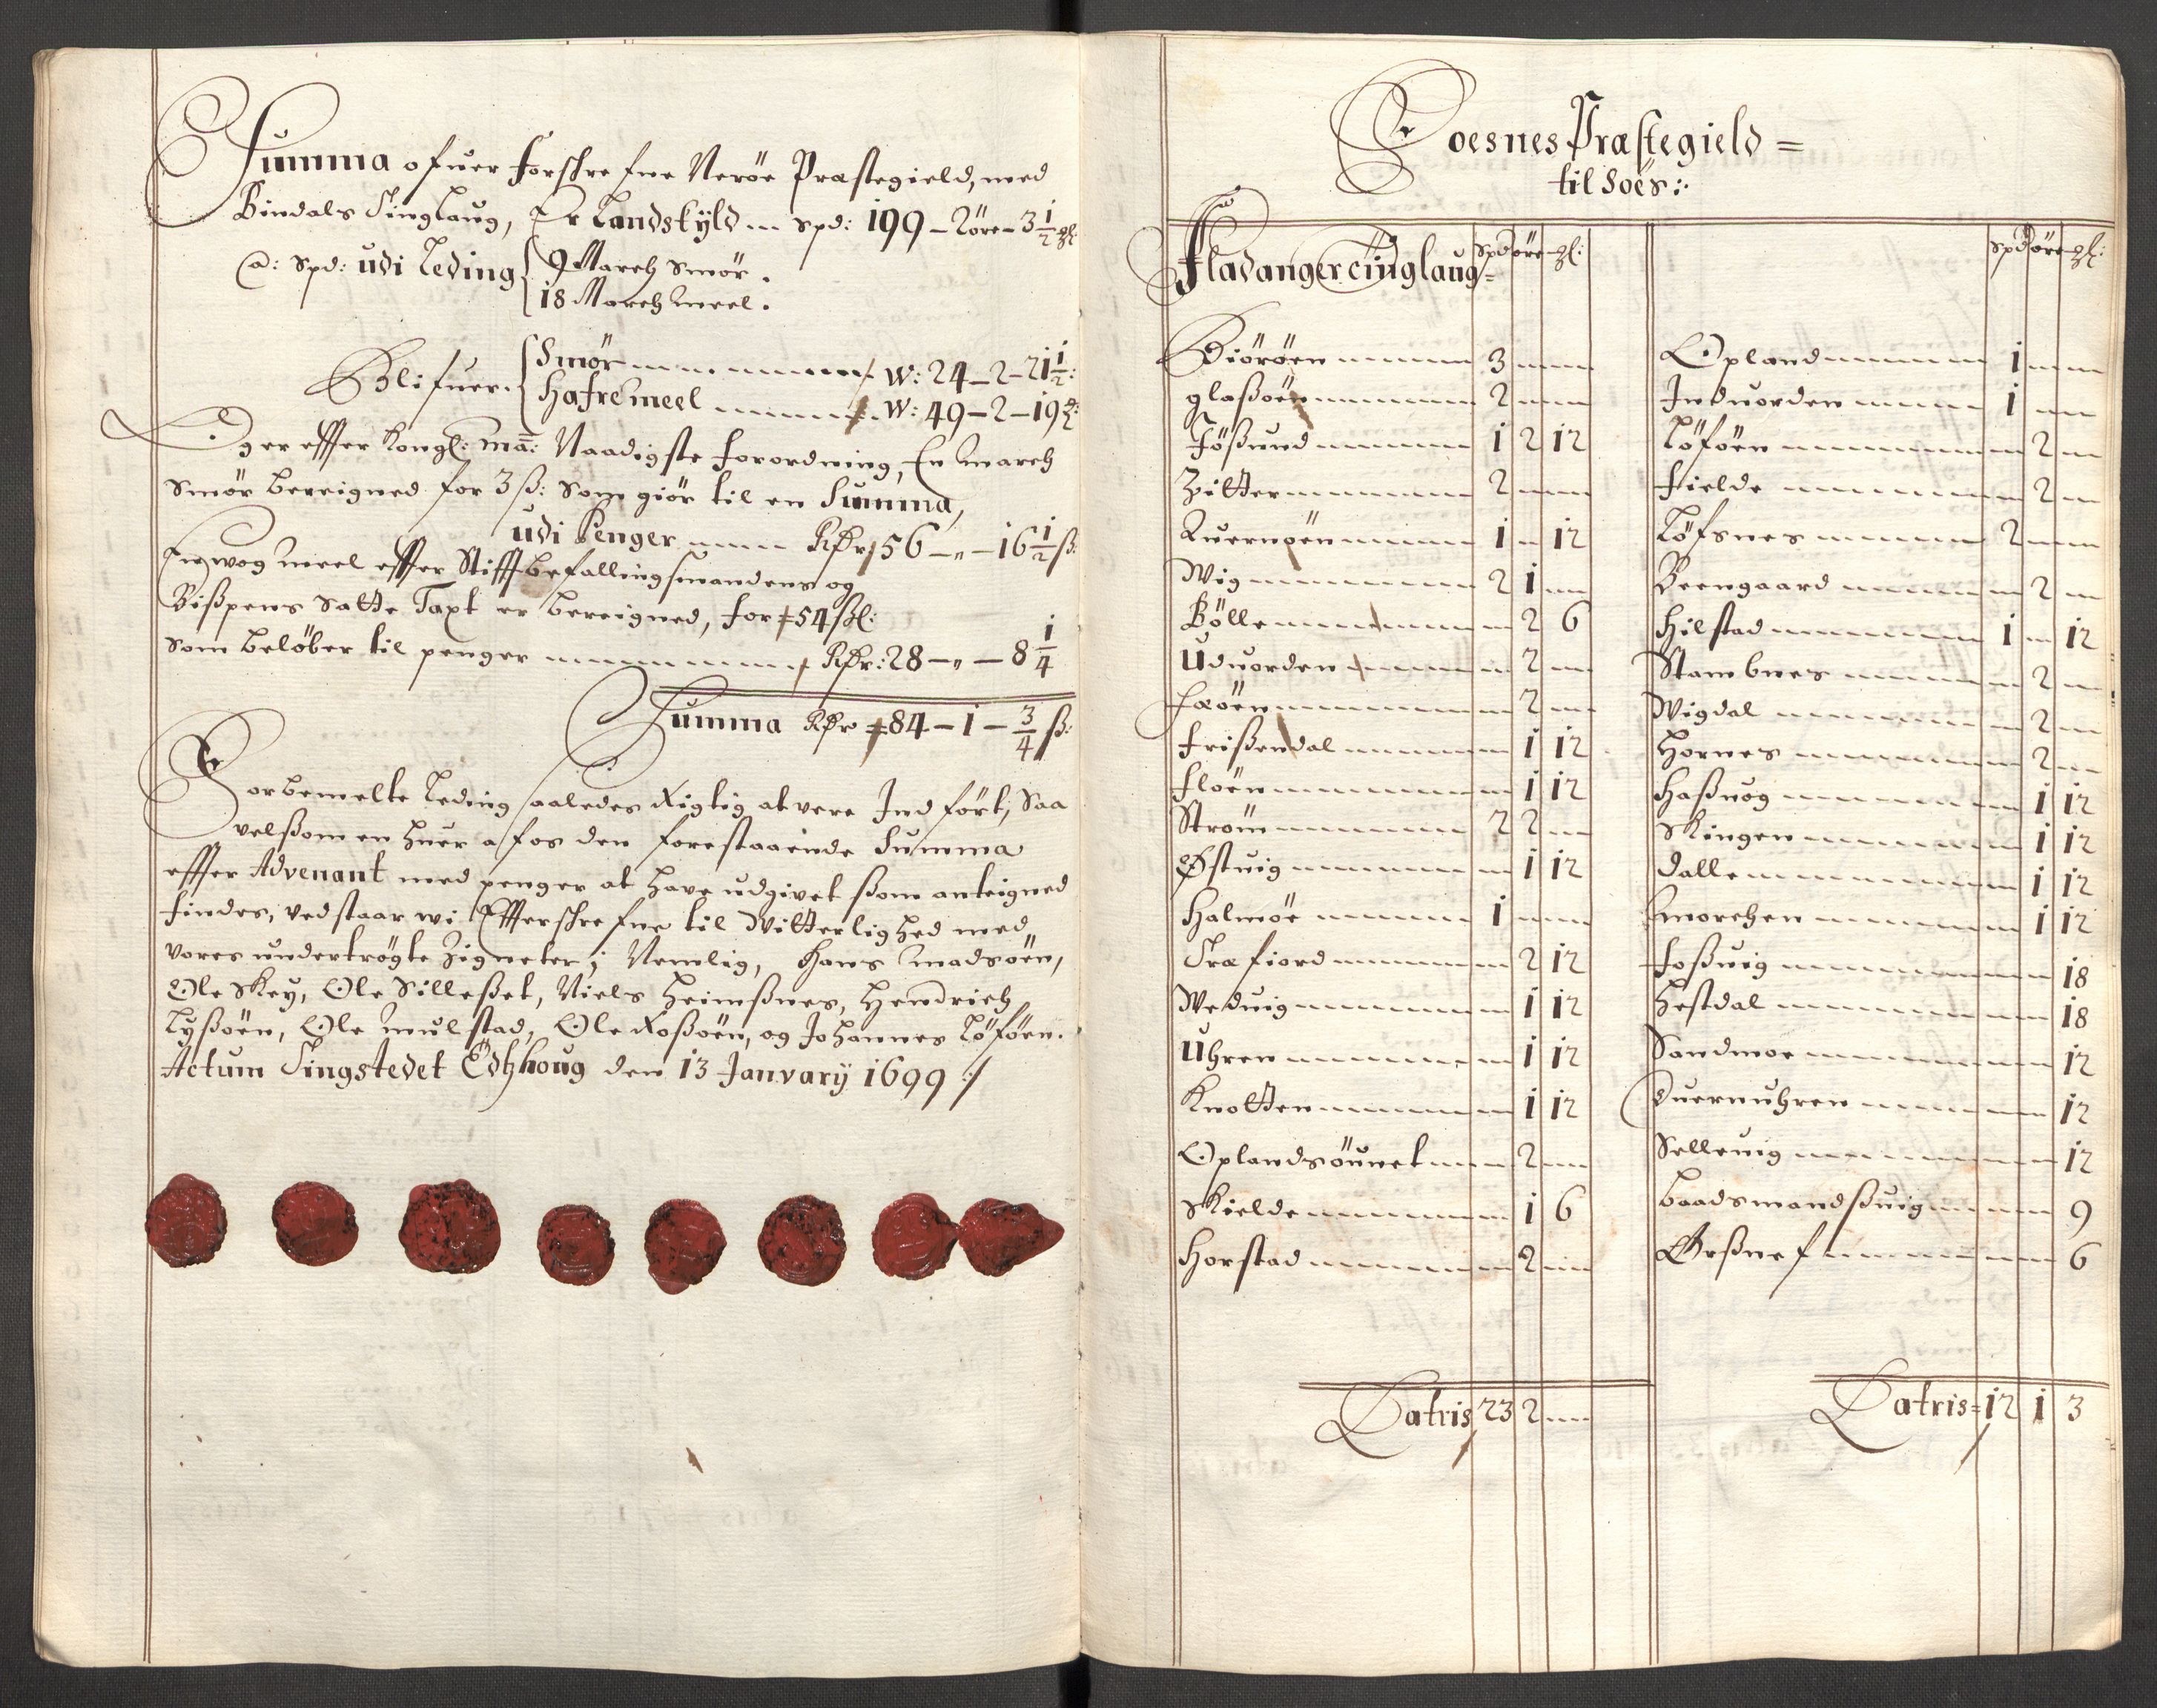 Summa ofuer forschrefne Nerøe Præstegield, med
Bindals Tinglaug, Er Landskÿld - - - spd: 199 - 2 øre - 3 1/2 gl:
a: Spd: udi Leding { 9 March Smør.
18 March meel.
Blifuer. { Smør - - - W: 24 - 2 - 21 1/2:
Hafremeel - - - W: 49 - 2 - 19
Og er effter Kongl: Maÿ: Naadigste forordning, En march
Smør bereigned for 3 ß: Som giør til en Summa,
udi Penger - - - Rdr 56 - „ - 16 1/2 ß:
En wog meel effter Stifftbefallingsmandens og
Bißpens Satte Taxt er bereigned, for 54 ßl:
som beløber til penger - - - Rdr: 28 - „ - 8 1/4
Summa Rdr 84 - 1 - 3/4 ß:
Forbemelte Leding saaledes Rigtig at vere Indført, Saa
velßom en huer af os den forestaaende Summa
effter Advenant med penger at have udgivet ßom anteigned
findes, vedstaar wi Effterschrefne til Vitterlighed med
vores undertrøgte Zigneter; Nemlig, Hans Madsøen,
Ole Skey, Ole Silleßet, Niels Heimßnes, Hendrich
Lyßøen, Ole Mulstad, Ole Roßøen, og Johannes Løføen.
Actum Tingstedet Edtzhoug den 13 Janvarÿ 1699 :/
Foesnes Præstegield =
til Soës:
Fladanger Tinglaug=
Spd øre gl:
Biörøen - - - 3 - - -
glaßøen - - - 2 - - -
Jößund - - - 1 2 12
Zitter - - - 2 - - -
Quernøen - - - 1 - 12
Wig - - - 2 1 -
Bölle - - - 2 6
Uduorden - - - 2 -
Faøen - - - 2 -
Frißendal - - - 1 12
Fløen - - - 1 12
Strøm - - - 2 2 -
Østuig - - - 1 12
Halmøe - - - 1 - - -
Træfiord - - - 2 12
Weduig - - - 1 12
Uhren - - - 1 12
Knotten - - - 1 12
Oplandsøunet - - - 2 -
Skielde - - - 1 6
Horstad - - - 2 -
Latris 23 2 -
Spd øre gl:
Opland - - - 1 - - -
Induorden - - - 1 - -
Løføen - - - 2 -
Fielde - - - 2 -
Løfsnes - - - 2 - - -
Beengaard - - - 2 -
Hilstad - - - 1 - 12
Stambnes - - - 2 -
Wigdal - - - 2 -
Hornes - - - 2 -
Haßuog - - - 1 12
Skingen - - - 1 12
Dalle - - - 1 12
Emorchen - - - 1 12
Foßuig - - - 18
Hestdal - - - 18
Sandmoe - - - 12
Duernuhren - - - 12
Selleuig - - - 12
Baadsmandßuig - - - 9
Ørßnes - - - 6
Latris= 12 1 3